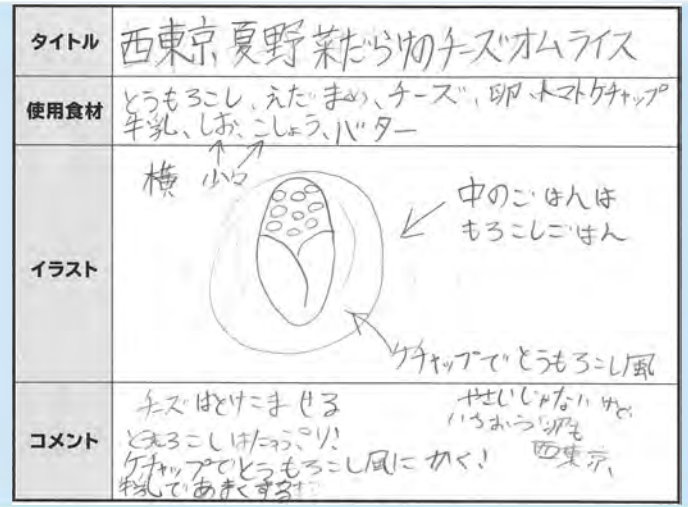 タイトル
西東京夏野菜だらけのチーズオムライス
使用食材
とうもろこし、えだまめ、チーズ、卵、トマトケチャップ
牛乳、しお、こしょう、バター
イラスト
横
少々
中のごはんは
もろこしごはん
ケチャップでとうもろこし風
コメント
チーズはとけこませる
とうもろこしはたっぷり!
ケチャップでとうもろこし風にかく!
牛乳であまくする
やさいじゃないけど
いちおう卵も
西東京